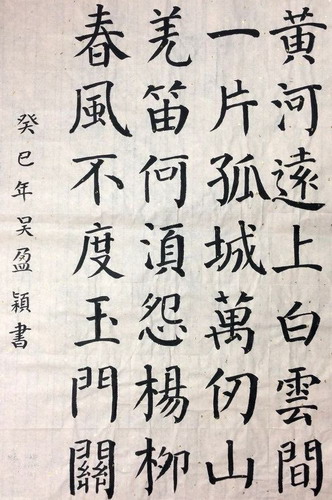 黃河遠上白雲間
一片孤城萬仞山
羌笛何湏怨楊柳
春風不度玉門關
癸巳年吴盈穎書